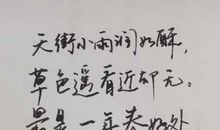 天街小雨润如酥,
草色遥看近却无。
最是一年春好处